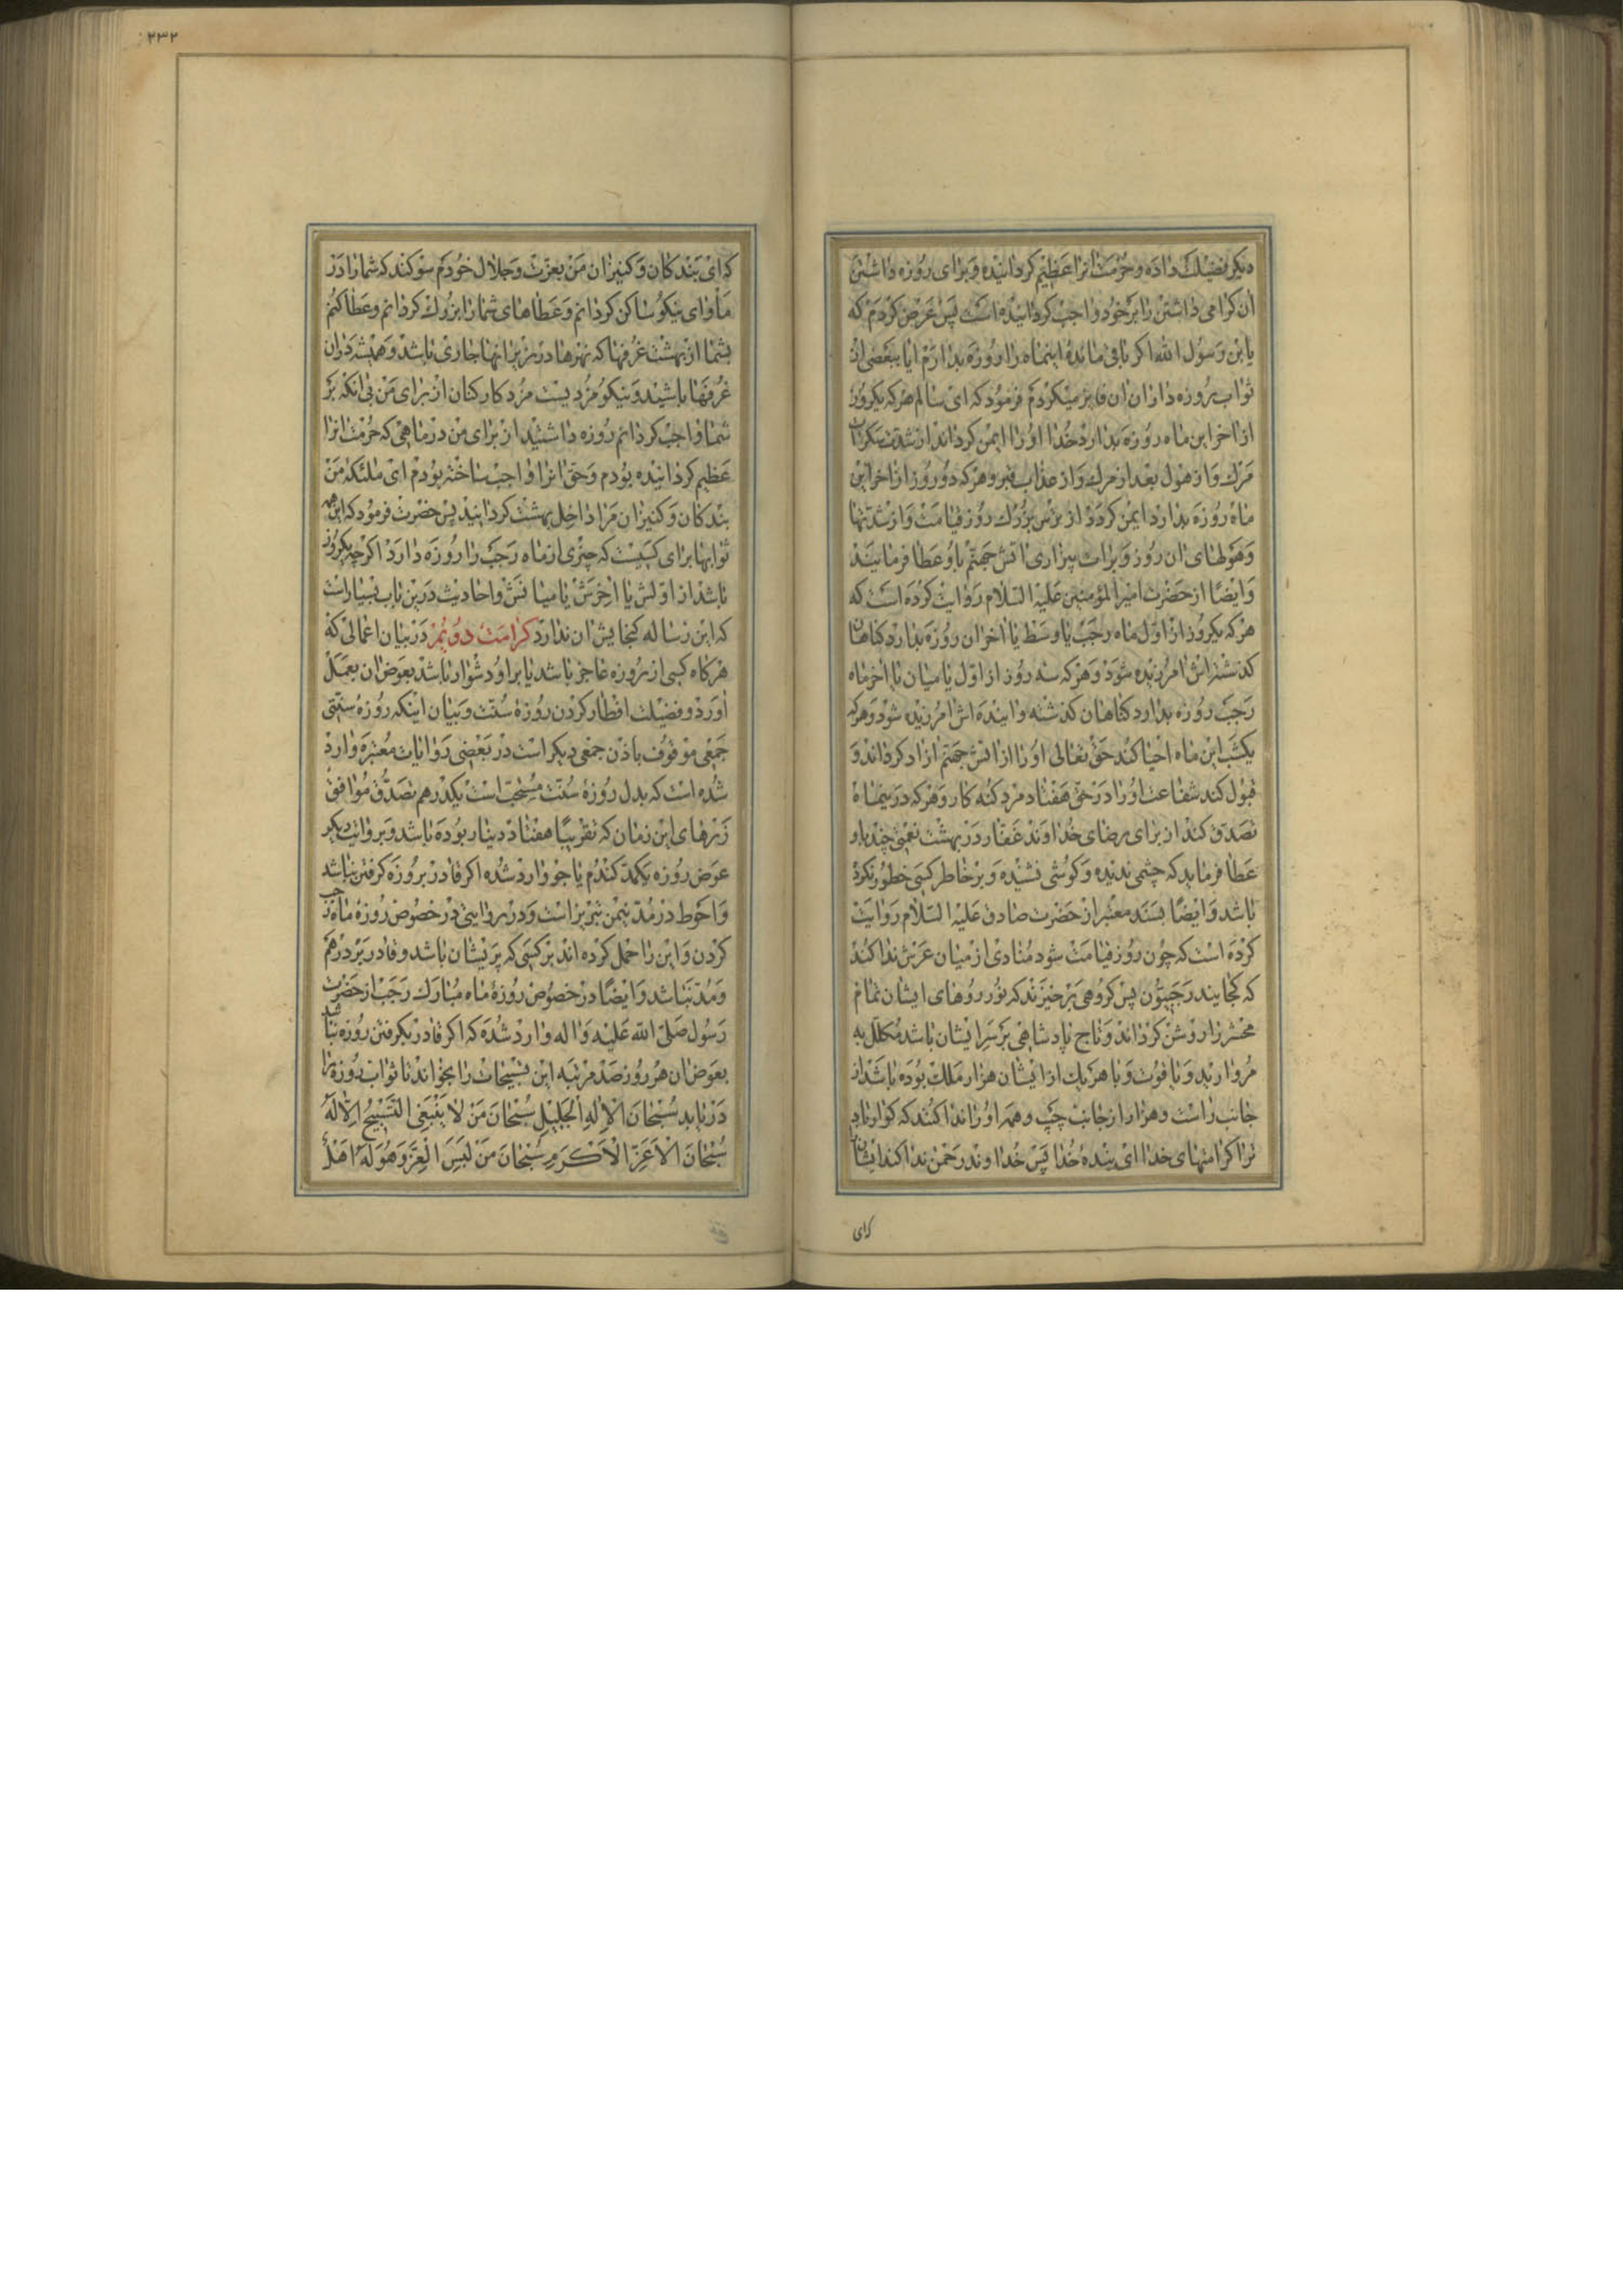 دیکر فضیلت داده و حرمت انرا عظیم کردانیده و برای روزه داشتن
ان کرامی داشتن را بر خود واجب کردانیده است پس عرض کردم که
یا بن رسول الله اکر باقی مانده اینماه را روزه بدارم ایا ببعضی از
ثواب روزه داران ان فایز میکردم فرمود که ای سالم هر که یکروز
از اخر این ماه روزه بدارد خدا او را ایمن کرداند از شدت سکرات
مرک و از هول بعد از مرک و از عذاب قبر و هر که دو روز از اخر این
ماه روزه بدارد ایمن کردد از ترس بزرک روز قیامت و از شدتها
و هولهای ان روز و برات بیزاری اتش جهنم باو عطا فرمایند
و ایضا از حضرت امیر المؤمنین علیه السلام روایت کرده است که
هر که یکروز از اول ماه رجب یا وسط یا اخر ان روزه بدارد کناهان
کذشته اش امرزیده شود و هر که سه روز از اول یا میان یا اخر ماه
رجب روزه بدارد کناهان کذشته و اینده اش امرزیده شود و هر که
یکشب این ماه احیا کند حق تعالی او را از اتش جهنم ازاد کرداند و
قبول کند شفاعت او را در حق هفتاد مرد کنه کار و هر که در ینماه
تصدق کند از برای رضای خداوند غفار در بهشت نعمتی چند باو
عطا فرماید که چشمی ندیده و کوشی نشنیده و بر خاطر کسی خطور نکرده
باشد و ایضا بسند معتبر از حضرت صادق علیه السلام روایت
کرده است که چون روز قیامت شود منادی از میان عرش ندا کند
که کجایند رجبیون پس کروهی برخیزند که نور روهای ایشان تمام
محشر را روشن کرداند و تاج پادشاهی بر سر ایشان باشد مکلل به
مروارید و یاقوت و با هر یک از ایشان هزار ملک بوده باشد از
جانب راست و هزار از جانب چپ و همه او را ندا کنند که کوارا باد
ترا کرامتهای خدا ای بنده خدا پس خداوند رحمن ندا کند ایشان
کرای
۲۳۲
که ای بندکان و کنیزان من بعزت و جلال خودم سوکند که شما را در
مأوای نیکو ساکن کردانم و عطاهای شما را بزرک کردانم و عطا کنم
بشما از بهشت غرفها که نهرها در زیر انها جاری باشد و همیشه در ان
غرفها باشید و نیکو مزدیست مزد کار کنان از برای من بی انکه بر
شما واجب کردانم روزه داشتید از برای من در ماهی که حرمت انرا
عظیم کردانیده بودم و حق انرا واجب ساخته بودم ای ملئکه من
بندکان و کنیزان مرا داخل بهشت کردانید پس حضرت فرمود که این همه
ثوابها برای کسیست که چیزی از ماه رجب را روزه دارد اکرچه یکروز
باشد از اولش یا اخرش یا میانش و احادیث در ین باب بسیار است
که این رساله کنجایش ان ندارد کرامت دویم در بیان اعمالی که
هر کاه کسی از روزه عاجز باشد یا بر او دشوار باشد بعوض ان بعمل
اورد و فضیلت افطار کردن روزه سنت و بیان اینکه روزه سنتی
جمعی موقوف باذن جمعی دیکر است در بعضی روایات معتبره وارد
شده است که بدل روزه سنت مستحب است یکدرهم تصدق موافق
زرهای این زمان که تقریبا هفتاد دینار بوده باشد و بروایت دیکر
عوض روزه یکمد کندم یا جو وارد شده اکر قادر بروزه کرفتن نباشد
و احوط در مد نیمن تبریز است و در روایتی در خصوص روزه ماه رجب
کردن و این را حمل کرده اند بر کسی که پریشان باشد و قادر بر درهم
و مد نباشد و ایضا در خصوص روزه ماه مبارک رجب از حضرت
رسول صلی الله علیه و اله وارد شده که اکر قادر بکرفتن روزه نباشد
بعوض ان هر روز صد مرتبه این تسبیحات را بخواند تا ثواب روزه را
در یابد سبحان الاله الجلیل سبحان من لا ینبغی التسبیح الا له
سبحان الاعز الاکرم سبحان من لبس العز و هو له اهل